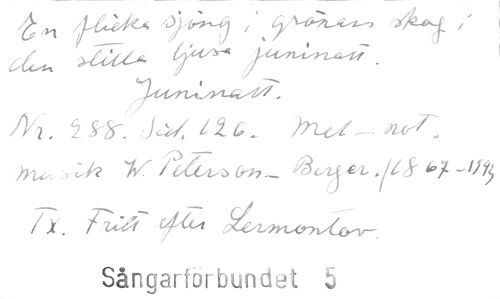 En flicka sjöng i grönans skog i
den stilla ljusa juninatt.
Juninatt.
Nr. 288. Sid. 126. Mel-not.
musik W. Peterson-Berger. (1867-1942
Tx. Fritt efter Lermontov.
Sångarförbundet 5